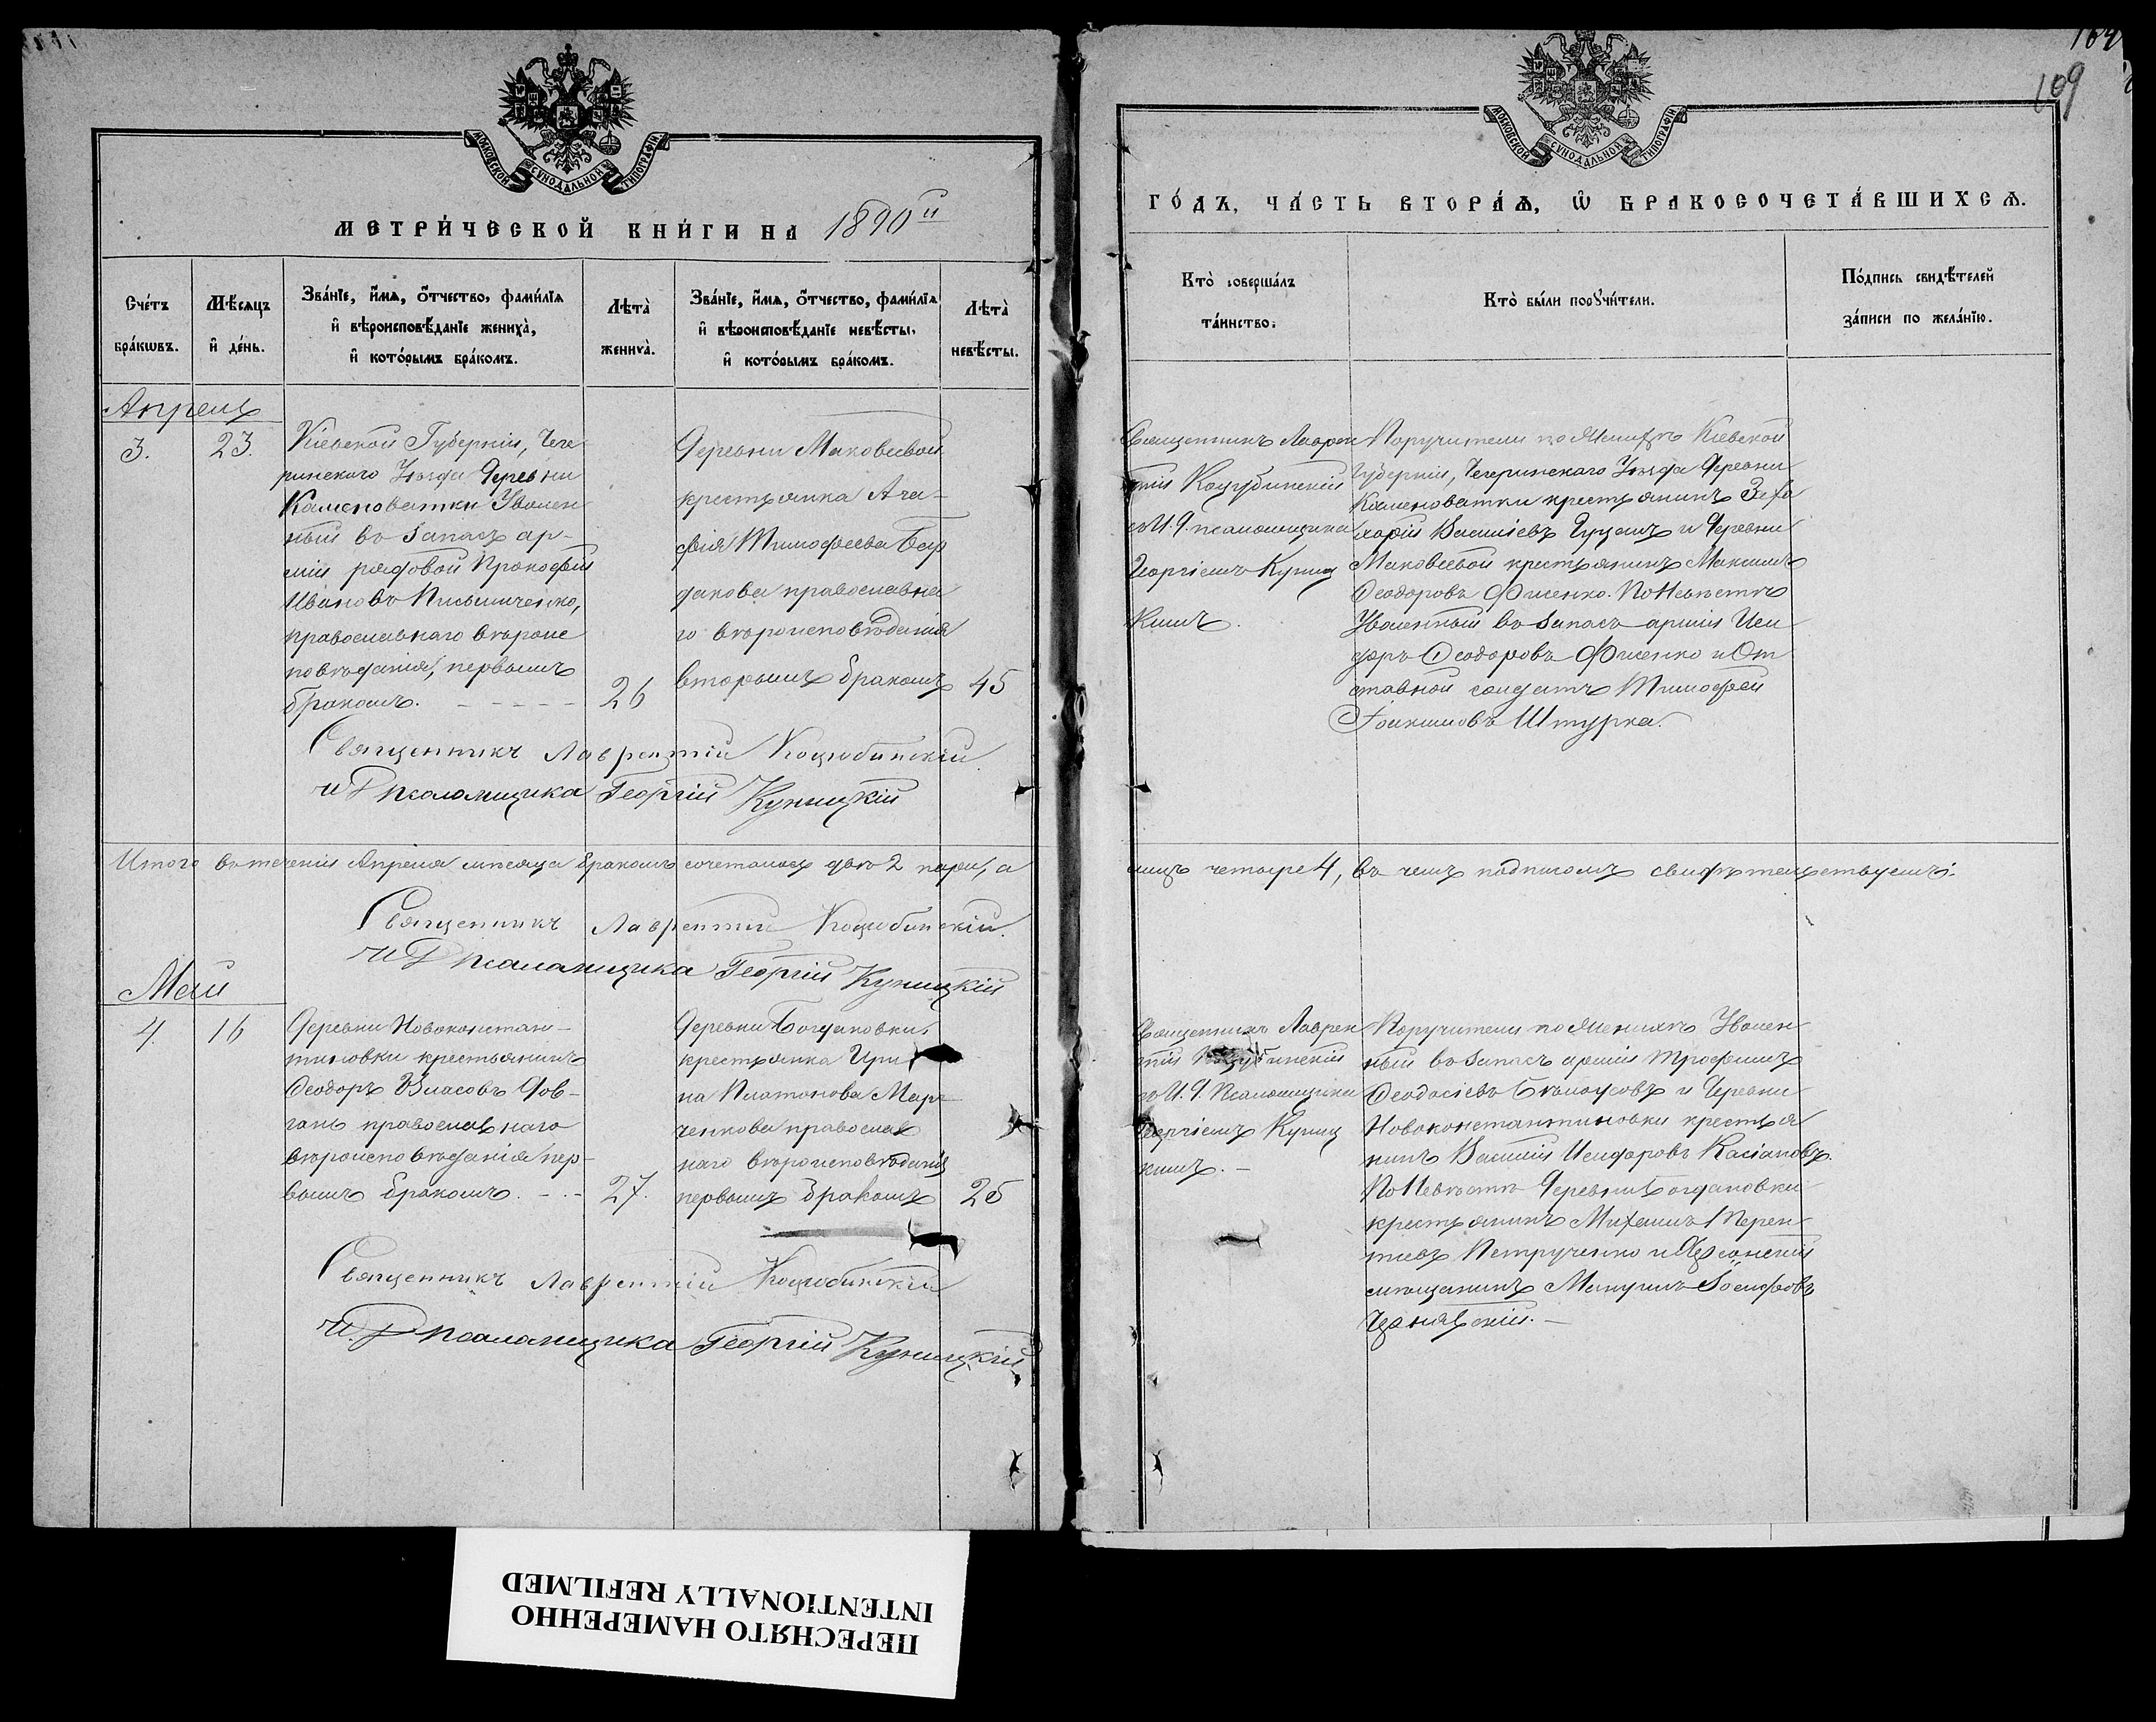 МОСКОВСКОЙ СѴНОДАЛЬНОЙ ТИПОГРАФІИ.
МЕТРИ́ЧЕСКОЙ КНИ́ГИ НА 1890й
Сче́тъ бра́кωвъ.
Мѣ́сяцъ и҆ де́нь.
Зва́нїе, и҆́мѧ, ѻ҆́тчество, фами́лїѧ
и҆ вѣроисповѣ́данїе жениха̀,
и҆ кото́рымъ бра́комъ.
Лѣта̀ жениха̀.
Зва́нїе, и҆́мѧ, ѻ҆́тчество, фами́лїѧ
и҆ вѣроисповѣ́данїе невѣ́сты,
и҆ кото́рымъ бра́комъ.
Лѣта̀ невѣ́сты.
Апрель
3.
23.
Кіевской Губерніи, Чеге
ринскаго Уѣзда Деревни
Каменоватки Уволен
ный въ запасъ ар-
міи рядовой Прокофій
Ивановъ Письмиченко,
православнаго вѣроис
повѣданія, первымъ
бракомъ. - - - - -
26
Деревни Маковеевой
крестьянка Ага-
фія Тимофеева Бар
дакова православна
го вѣроисповѣданія
вторымъ бракомъ
45
Священникъ Лаврентій Коцюбинскій.
И Д псаломщика Георгій Куницкій
Итого въ теченіи Апреля мѣсяца бракомъ сочеталось двѣ 2 пары, а
Священникъ Лаврентій Коцюбинскій.
И Д псаломщика Георгій Куницкій
Май
4.
16
Деревни Новоконстан-
тиновки крестьянинъ
Ѳеодоръ Власовъ Дов-
гань православнаго
вѣроисповѣданія пер-
вымъ бракомъ. - . -
27.
Деревни Богдановки,
крестьянка Ири
на Платонова Мар
ченкова православ
наго вѣроисповѣданія
первымъ бракомъ
25
Священникъ Лаврентій Коцюбинскій
И. Д псаломщика Георгій Куницкій
109
ГО́ДЪ, ЧА́СТЬ ВТОРА́Ѧ, Ѡ҆ БРАКОСОЧЕТА́ВШИХСѦ.
МОСКОВСКОЙ СѴНОДАЛЬНОЙ ТИПОГРАФІИ.
Кто̀ соверша́лъ
та́инство.
Кто̀ бы́ли порꙋчи́тели.
По́дпись свидѣ́телей
за́писи по жела́нїю.
Священникъ Лаврен
тій Коцубинскій
съ И. Д. псаломщика
Георгіемъ Куниц
кимъ.
Поручители по Женихѣ Кіевской
Губерніи, Чегеринскаго Уѣзда Деревни
Каменоватки крестьянинъ Заха
харій Василіевъ Гуцалъ и Деревни
Маковеевой крестьянинъ Максимъ
Ѳеодоровъ Фисенко. По Невѣстѣ
Уволенный въ запасъ арміи Иси
доръ Ѳеодоровъ Фисенко и От
ставной солдатъ Тимофей
Іоакимовъ Штурка.
лицъ четыре 4, въ чемъ подписомъ свидѣтельствуемъ:
Священникъ Лаврен
тій Коцубинскій
съ И. Д. Псаломщика
Георгіемъ Куниц
кимъ. -
Поручители по Женихѣ Уволен
ный въ запасъ арміи Трофимъ
Ѳеодосіевъ Бѣлоусовъ и Деревни
Новоконстантиновки крестья
нинъ Василій Исидоровъ Касіановъ.
По Невѣстѣ Деревни Богдановки
крестьянинъ Михаилъ Терен
тіевъ Петрученко и Херсонскій
мѣщанинъ Мануилъ Іосифовъ
ПЕРЕСНЯТО НАМЕРЕННО
INTENTIONALLY REFILMED